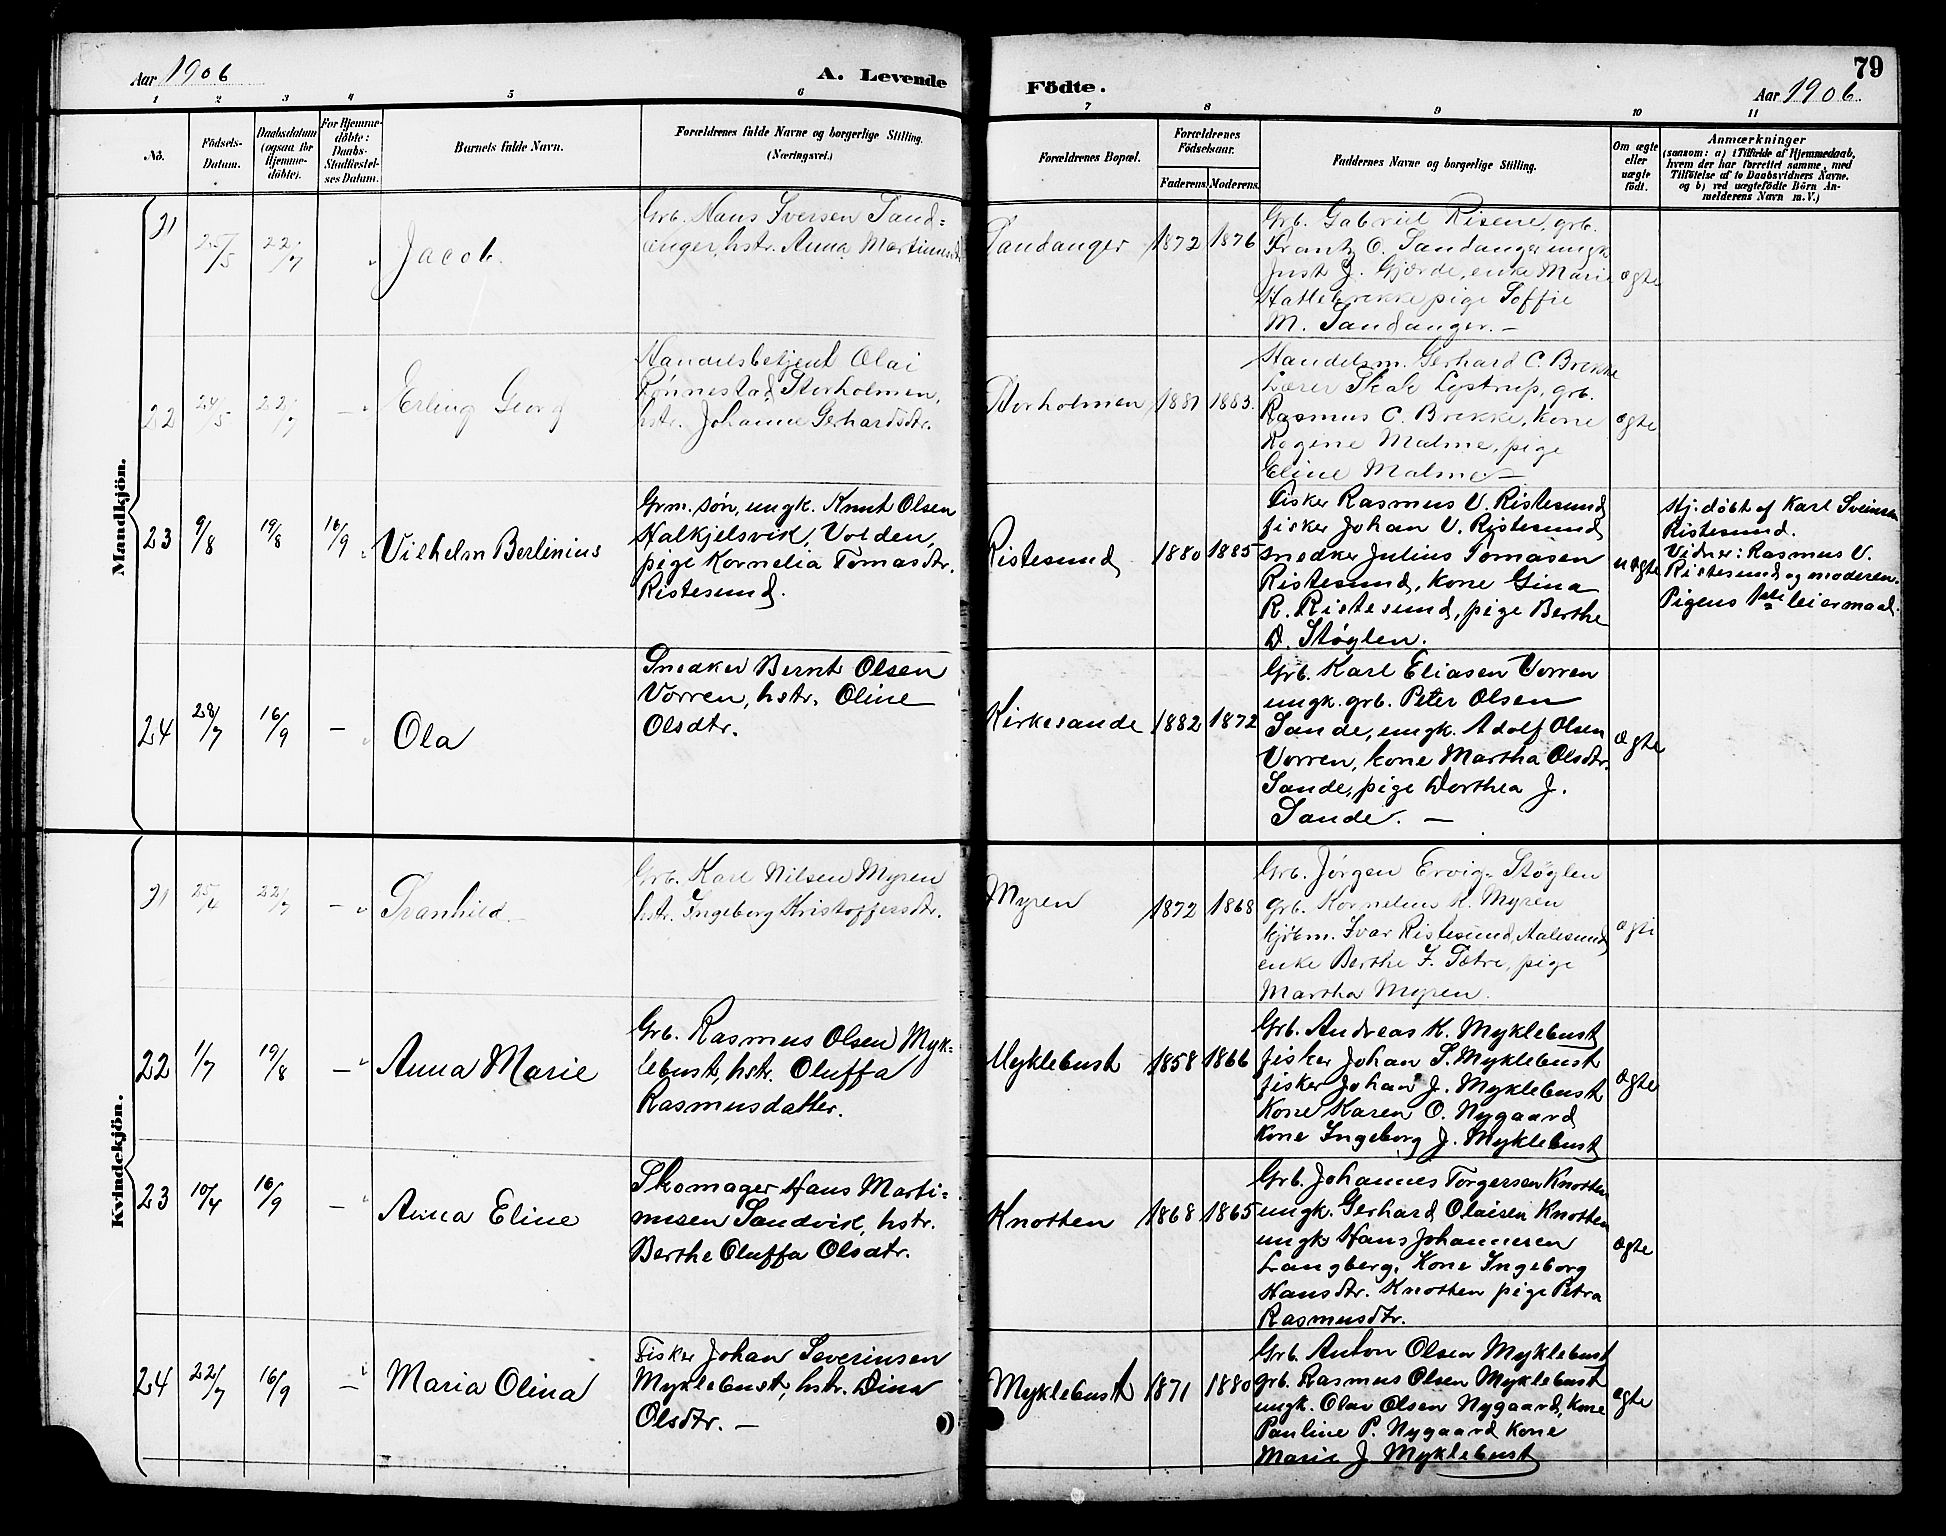 Aar 1906
A. Levende
Födte.
79
Aar 1906.
1 2 3 4 5 6 7 8 9 10 11
No.
Födsels-
Datum.
Daabsdatum
(ogsaa for
Hjemme-
döbte).
For Hjemme-
döbte:
Daabs-
Stadfæstel-
ses Datum.
Barnets fulde Navn.
Forældrenes fulde Navne og borgerlige Stilling.
(Næringsvei.)
Forældrenes Bopæl.
Forældrenes
Födselsaar.
Faderens. Moderens.
Faddernes Navne og borgerlige Stilling.
Om ægte
eller
uægte
født.
Anmærkninger
(saasom: a) i Tilfælde af Hjemmedaab,
hvem der har forrettet samme, med
Tilføielse af to Daabsvidners Navne.
og b) ved uægtefödte Börn An-
melderens Navn m.V.)
Mandkjön.
21
25/5
22/7
Jacob.
Grb. Hans Iversen Sand=
anger, hstr. Anna Martinusdtr.
Sandanger
1872
1876
Grb. Gabriel Risene, grb.
Frantz O. Sandanger ungk.
Just J. Gjærde, enke Marie
Hatlebrekke pige Soffie
M. Sandanger. —
ægte
22
24/5
22/7
—
Erling Georg
Handelsbetjent Olai
Rønnestad, Storholmen,
hstr. Johanne Gerhardsdtr.
Storholmen
1881
1883.
Handelsm. Gerhard C. Brekke
Lærer Lystrup, grb.
Rasmus C. Brekke, kone
Regine Malme, pige
Eline Malme —
ægte
23
9/8
19/8
16/9
Vilhelm Berlinius
Grm. søn, ungk. Knut Olsen
Halkjelsvik, Volden,
pige Kornelia Tomasdtr.
Ristesund.
Ristesund
1880
1885
Fisker Rasmus V. Ristesund
fisker Johan V. Ristesund
snedker Julius Tomasen
Ristesund, kone Gina
R. Ristesund, pige Berthe
D. Støylen.
uægte
Hj. døbt af Karl Sveinsen
Ristesund.
Vidner: Rasmus V.
Ristesund og moderen.
Pigens 1ste leiermaal.
24
28/7
16/9
—
Ola
Snedker Bernt Olsen
Vorren, hstr. Oline
Olsdtr.
Kirkesande
1882
1872
Grb. Karl Eliasen Vorren
ungk. grb. Peter Olsen
Sande, ungk. Adolf Olsen
Vorren, kone Martha Olsdtr.
Sande, pige Dorthea J.
Sande. —
ægte
Kvindekjön.
21
25/4
22/7
—
Svanhild
Grb. Karl Nilsen Myren
hstr. Ingeborg Kristoffersdtr.
Myren
1872
1868
Grb. Jørgen Ervig=Støylen
grb. Kornelius K. Myren
kjøbm. Ivar Ristesund, Aalesund,
enke Berthe F. Sætre, pige
Martha Myren.
ægte
22
1/7
19/8
—
Anna Marie
Grb. Rasmus Olsen Myk=
lebust, hstr. Oluffa
Rasmusdatter.
Myklebust
1858
1866
Grb. Andreas K. Myklebust
fisker Johan S. Myklebust
fisker Johan J. Myklebust
Kone Karen O. Nygaard
Kone Ingeborg J. Myklebust
ægte
23
10/7
16/9
—
Anna Eline
Skomager Hans Marti=
nusen Sandvik, hstr.
Berthe Oluffa Olsdtr.
Knotten
1868
1865
Grb. Johannes Torgersen Knotten
ungk. Gerhard Olaisen Knotten
ungk. Hans Johannesen
Langberg, Kone Ingeborg
Hansdtr. Knotten pige Petra
Rasmusdtr.
ægte
24
22/7
16/9
—
Maria Olina
Fisker Johan Severinsen
Myklebust, hstr. Dina
Olsdtr. —
Myklebust
1871
1880
Grb. Anton Olsen Myklebust
grb. Rasmus Olsen Myklebust
ungk. Olav Olsen Nygaard, Kone
Pauline P. Nygaard Kone
Marie J. Myklebust
ægte